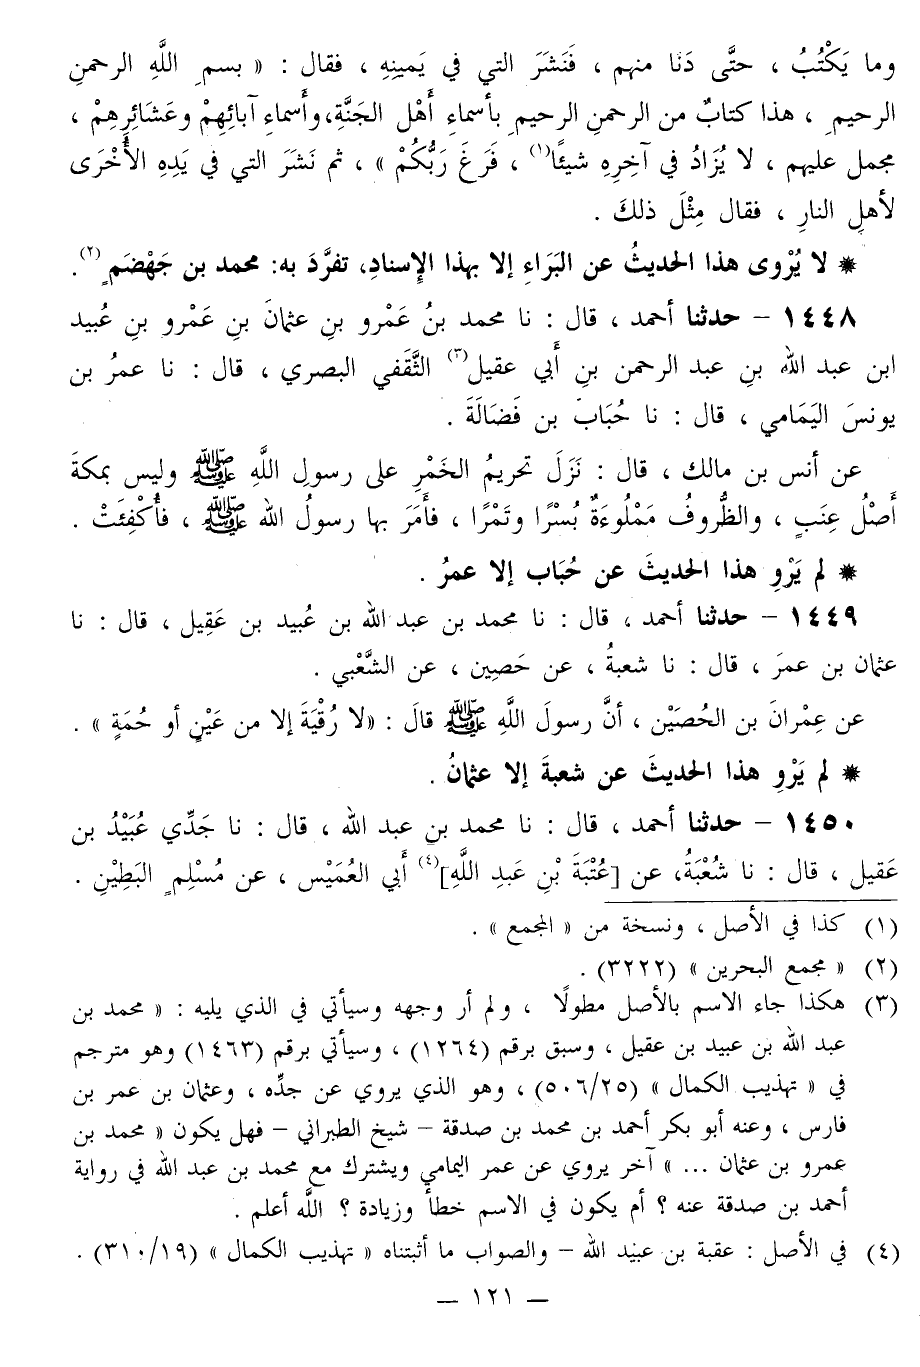 وما يَكْتُبُ ، حتَّى دَنا منهم ، فَنَشَرَ التي في يَمينِهِ ، فقال : « بسمِ اللَّهِ الرحمنِ
الرحيمِ ، هذا كتابٌ من الرحمنِ الرحيمِ بأسماءِ أَهْلِ الجَنَّةِ، وأَسماءِ آبائِهِمْ وعَشَائِرِهِمْ ،
مجمل عليهم ، لا يُزَادُ في آخِرِهِ شيئًا(١) ، فَرَغَ رَبُّكُمْ » ، ثم نَشَرَ التي في يَدِهِ الأُخْرَى
لأهلِ النارِ ، فقال مِثْلَ ذلكَ .
* لا يُرْوى هذا الحديثُ عن البَرَاءِ إلا بهذا الإِسنادِ، تفرَّدَ به: محمد بن جَهْضَمٍ(٢).
١٤٤٨ – حدثنا أحمد ، قال : نا محمد بنُ عَمْرو بنِ عثمانَ بنِ عَمْرو بنِ عُبيد
ابن عبد الله بنِ عبد الرحمن بنِ أَبي عقيل(٣) الثَّقَفي البصري ، قال : نا عمرُ بن
يونسَ اليَمَامي ، قال : نا حُبَاب بن فَضَالَةَ .
عن أنس بن مالك ، قال : نَزَلَ تحريمُ الخَمْرِ على رسولِ اللَّهِ ﷺ وليس بمكةَ
أَصْلُ عِنَبٍ ، والظُّروفُ مَمْلُوءَةٌ بُسْرًا وتَمْرًا ، فأمَرَ بها رسولُ الله ﷺ ، فأُكْفِئَتْ .
* لم يَرْوِ هذا الحديثَ عن حُبَاب إلا عمرُ .
١٤٤٩ – حدثنا أحمد ، قال : نا محمد بن عبد الله بن عُبيد بن عَقِيل ، قال : نا
عثمان بن عمرَ ، قال : نا شعبةُ ، عن حَصِين ، عن الشَّعْبي .
عن عِمْرانَ بن الحُصَيْن ، أنَّ رسولَ اللَّهِ ﷺ قالَ : «لا رُقْيَةَ إلا من عَيْنٍ أو حُمَةٍ » .
* لم يَرْوِ هذا الحديثَ عن شعبةَ إلا عثمانُ .
١٤٥٠ – حدثنا أحمد ، قال : نا محمد بن عبد الله ، قال : نا جَدِّي عُبَيْدُ بن
عَقيل ، قال : نا شُعْبَةُ، عن [عُتْبَةَ بْنِ عَبدِ اللَّهِ](٤) أَبي العُمَيْس ، عن مُسْلِمٍ البَطِيْنِ .
(١) كذا في الأصل ، ونسخة من « المجمع » .
(٢) « مجمع البحرين » (٣٢٢٢) .
(٣) هكذا جاء الاسم بالأصل مطولًا ، ولم أر وجهه وسيأتي في الذي يليه : « محمد بن
عبد الله بن عبيد بن عقيل ، وسبق برقم (١٢٦٤) ، وسيأتي برقم (١٤٦٣) وهو مترجم
في « تهذيب الكمال » (٥٠٦/٢٥) ، وهو الذي يروي عن جدِّه ، وعثمان بن عمر بن
فارس ، وعنه أبو بكر أحمد بن محمد بن صدقة – شيخ الطبراني – فهل يكون « محمد بن
عمرو بن عثمان ... » آخر يروي عن عمر اليمامي ويشترك مع محمد بن عبد الله في رواية
أحمد بن صدقة عنه ؟ أم يكون في الاسم خطأ وزيادة ؟ اللَّه أعلم .
(٤) في الأصل : عقبة بن عبيد الله – والصواب ما أثبتناه « تهذيب الكمال » (٣١٠/١٩) .
— ١٢١ —